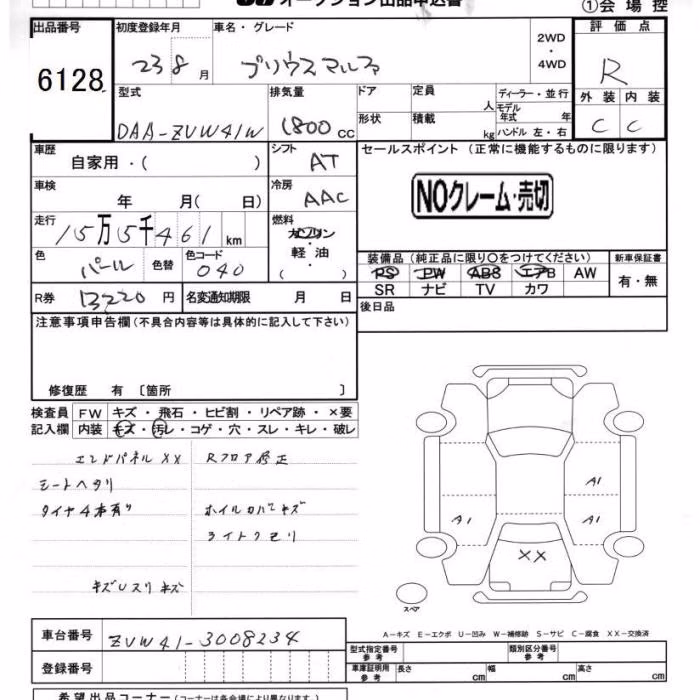 オークション出品申込書
①会場控
出品番号 6128
初度登録年月 23 8 月
車名・グレード プリウスアルファ
2WD・4WD
評価点 R
外装 内装
C C
型式 DAA-ZVW41W
排気量 1800 CC
ドア 形状
定員 人
積載 kg
ディーラー・並行
モデル年式 年
ハンドル 左・右
車歴 自家用・( )
シフト AT
セールスポイント(正常に機能するものに限ります)
NOクレーム・売切
車検 年 月( 日)
冷房 AAC
走行 15万5千461 km
燃料 ガソリン・軽油・( )
色 パール
色替
色コード 040
装備品(純正品に限り○をつけてください)
PS PW ABS エアB AW
SR ナビ TV カワ
新車保証書
有・無
R券 13220 円
名変通知期限 月 日
後日品
注意事項申告欄(不具合内容等は具体的に記入して下さい)
修復歴 有 〔箇所 〕
検査員記入欄
FW キズ・飛石・ヒビ割・リペア跡・×要
内装 キズ・汚レ・コゲ・穴・スレ・キレ・破レ
エンドパネルXX Rフロア修正
シートヘタリ
タイヤ4本有り ホイルカバーキズ
ライトクモリ
キズUスリキズ
A1
A1 A1
XX
スペア
A-キズ E-エクボ U-凹み W-補修跡 S-サビ C-腐食 XX-交換済
車台番号 ZVW41-3008234
登録番号
型式指定番号 参考
類別区分番号 参考
車庫証明用 参考
長さ cm 幅 cm 高さ cm
希望出品コーナー(コーナーは各会場により異なります)